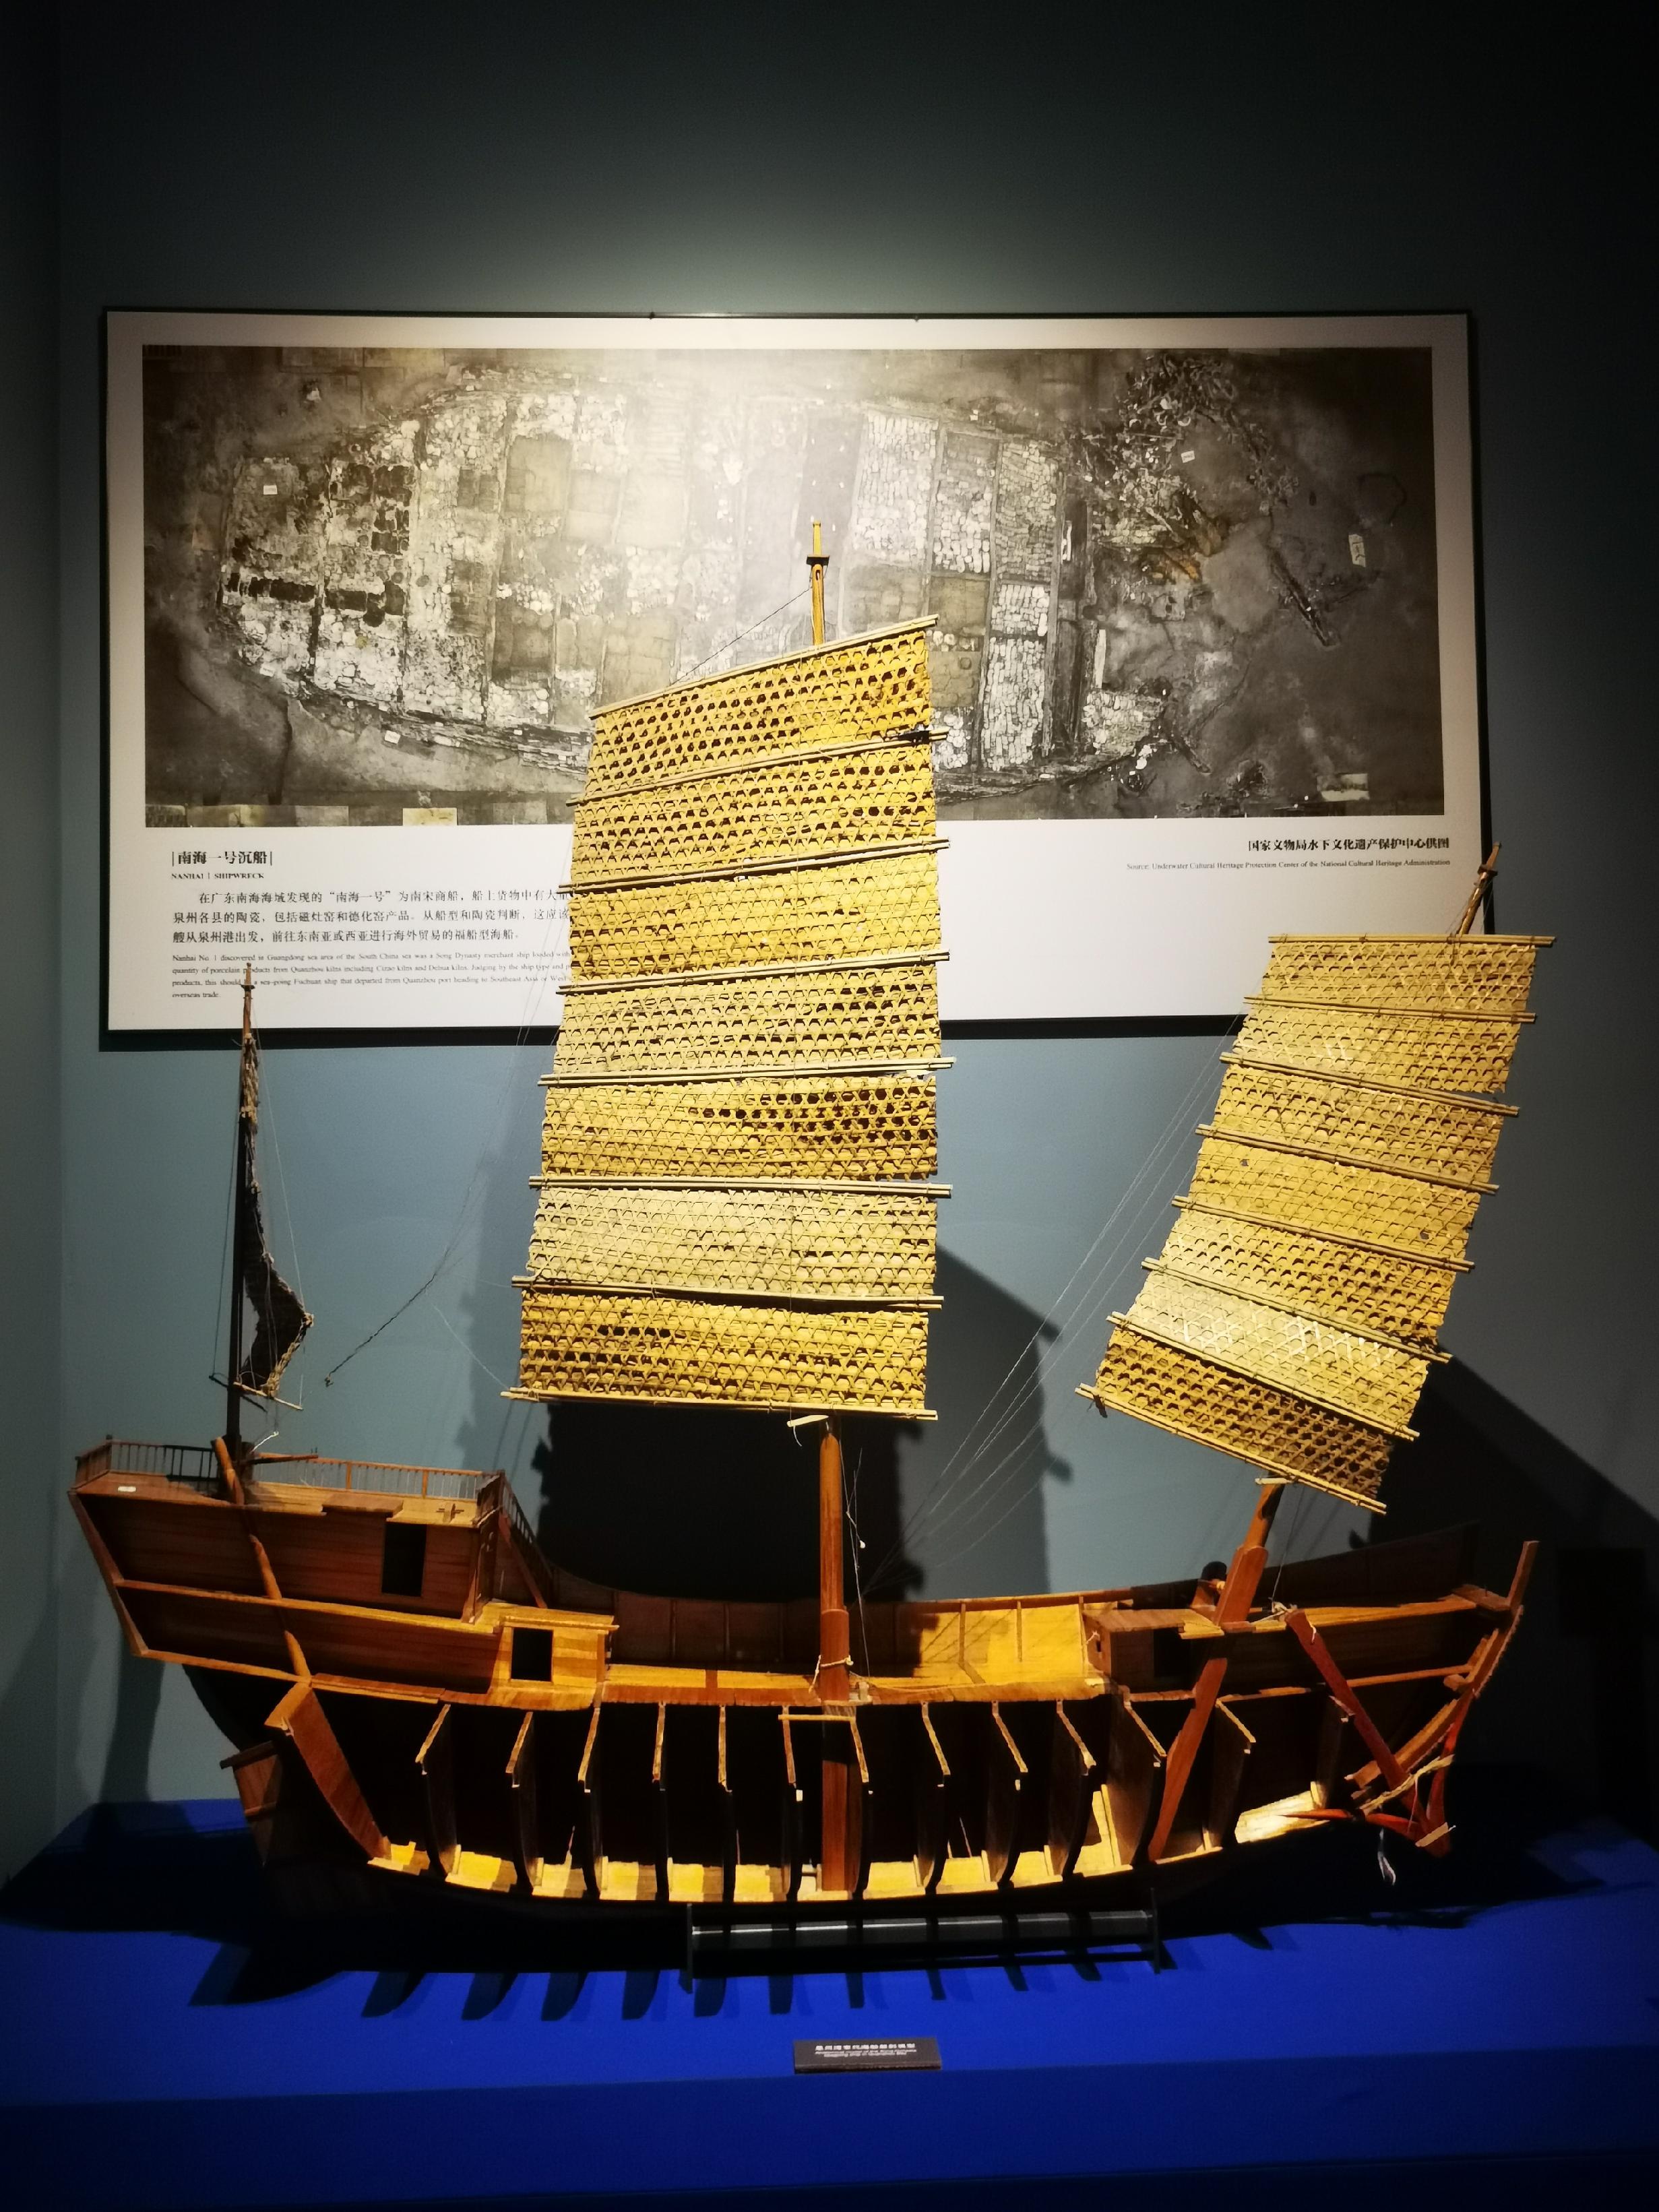 南海一号沉船
NANHAI I SHIPWRECK
在广东南海海域发现的“南海一号”为南宋商船,船上货物中有大量
泉州各县的陶瓷,包括磁灶窑和德化窑产品。从船型和陶瓷判断,这应该
艘从泉州港出发,前往东南亚或西亚进行海外贸易的福船型海船。
Nanhai No. 1 discovered in Guangdong sea area of the South China sea was a Song Dynasty merchant ship loaded with
quantity of porcelain products from Quanzhou kilns including Cizao kilns and Dehua kilns. Judging by the ship type and
products, this should be a sea-going Fuchuan ship that departed from Quanzhou port heading to Southeast Asia or West
overseas trade.
国家文物局水下文化遗产保护中心供图
Source: Underwater Cultural Heritage Protection Center of the National Cultural Heritage Administration